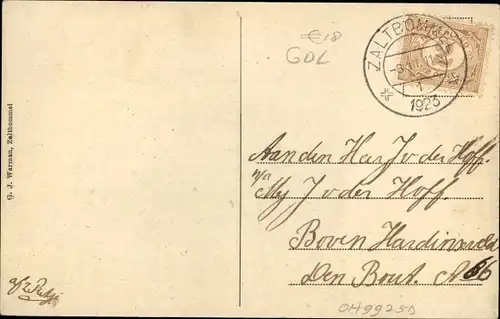 €18
GDL
ZALTBOMMEL
1
1923
G. J. Warnau, Zaltbommel
Aan den Heer J v der Hoff.
n/a
Mej J v der Hoff.
Boven Hardinxveld
Den Bout. A 66
OH9925D